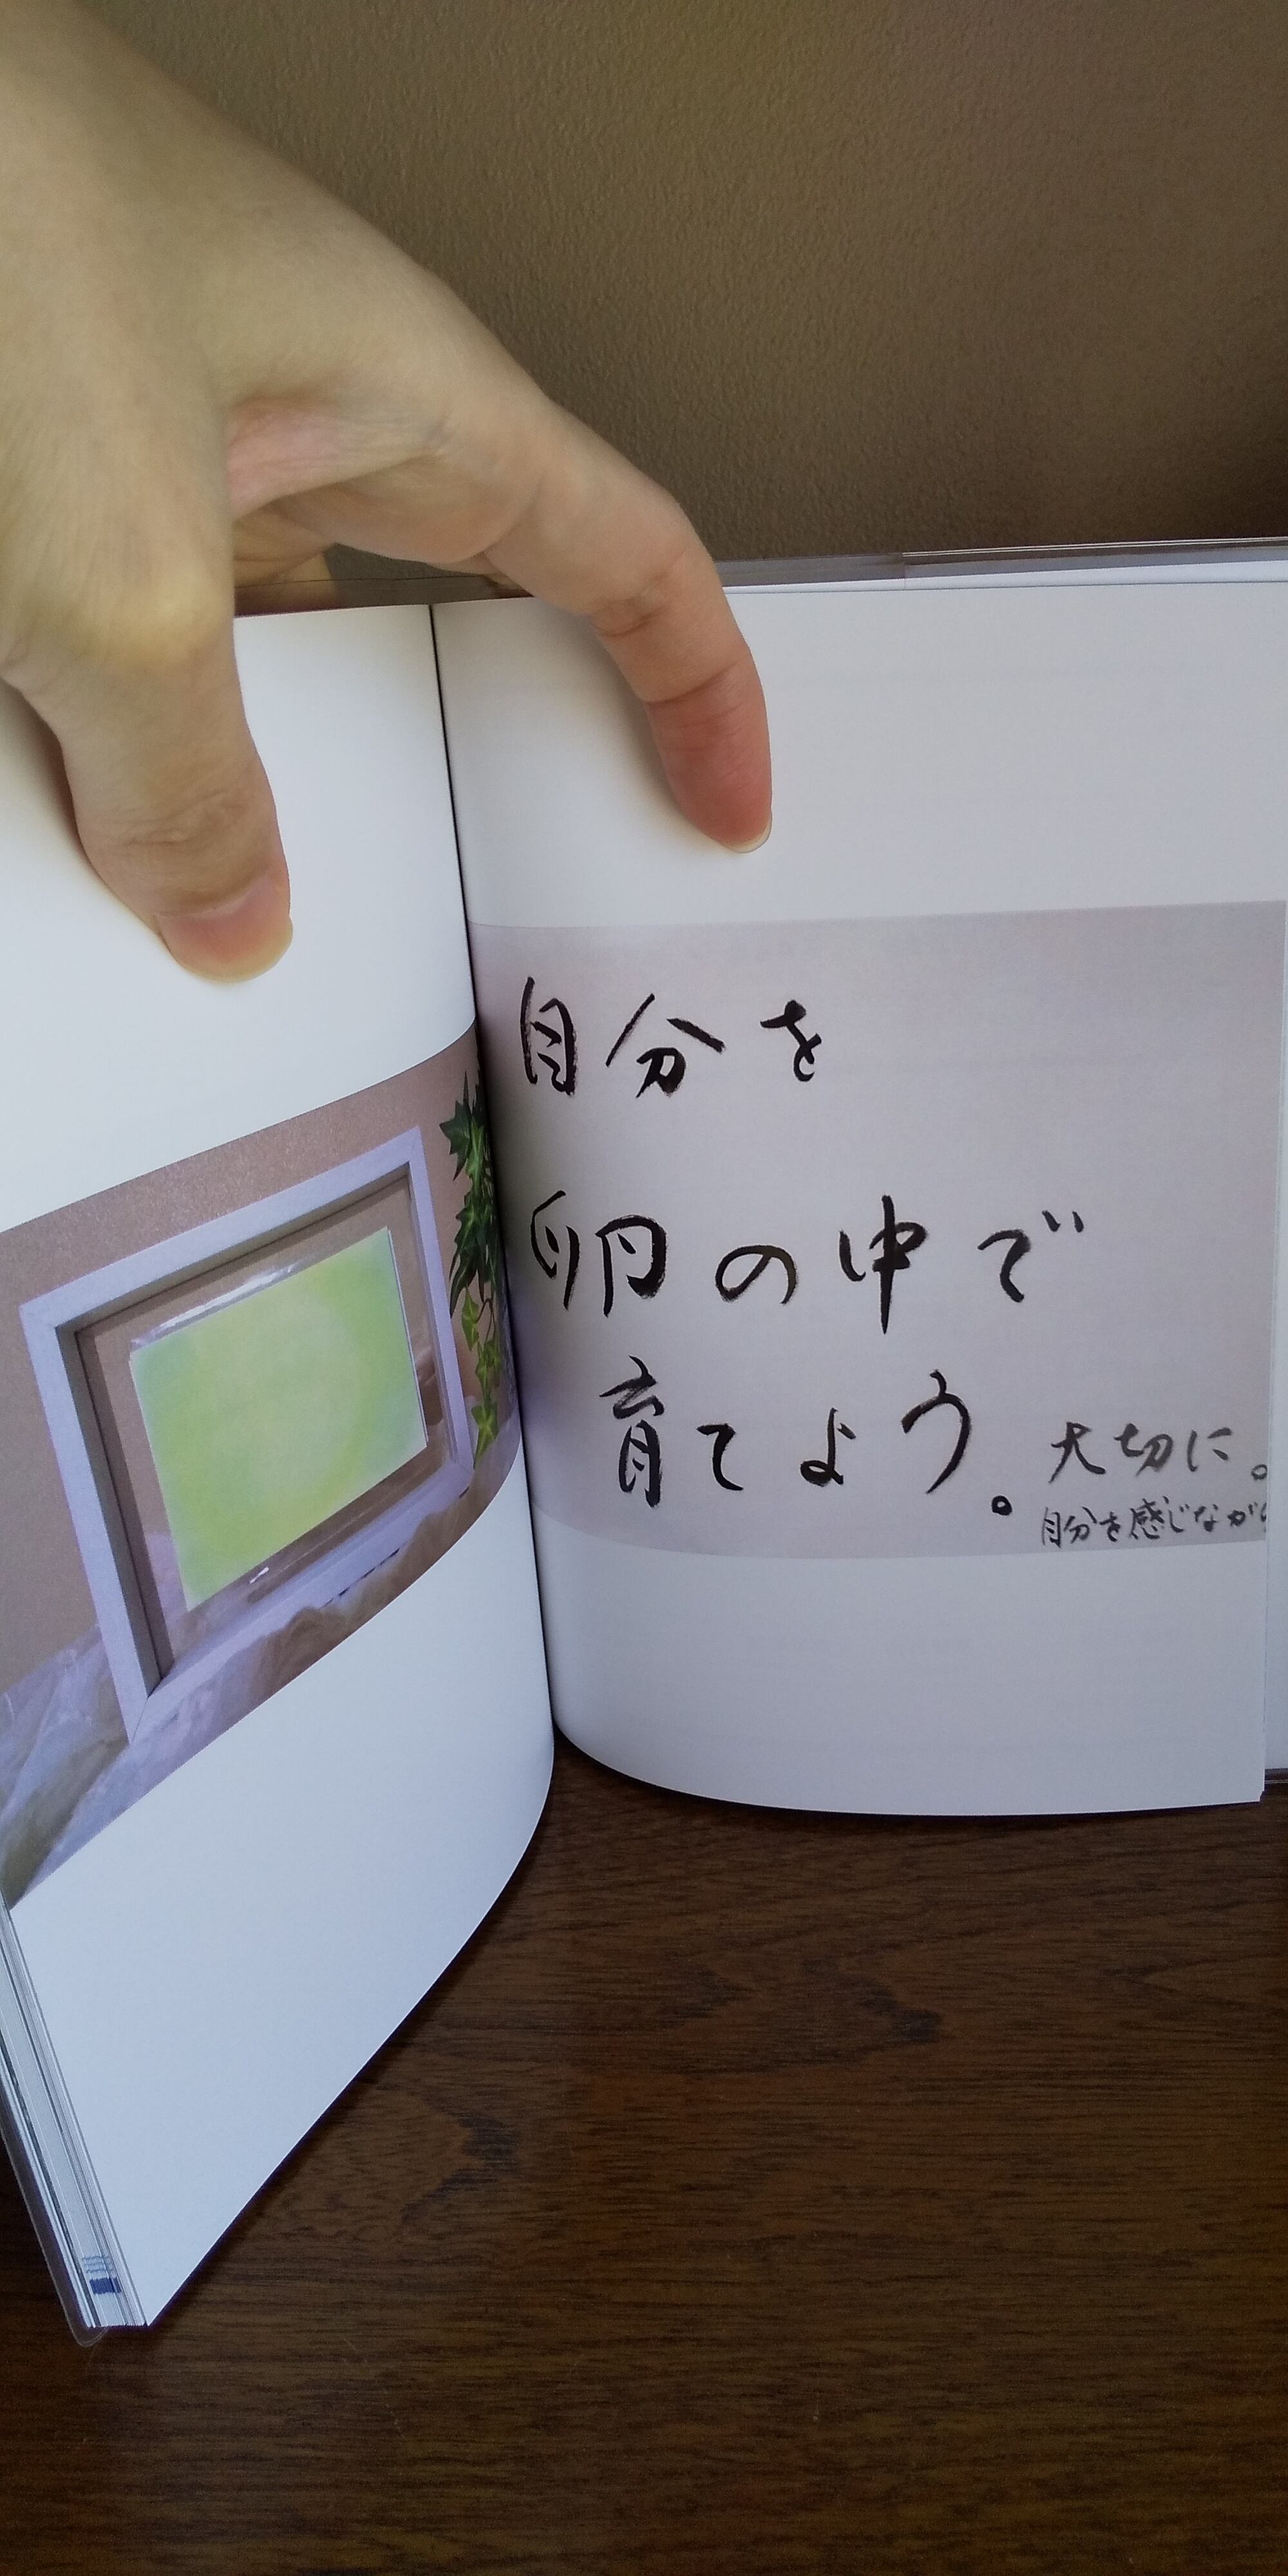 自分を
卵の中で
育てよう。
大切に。
自分を感じなが